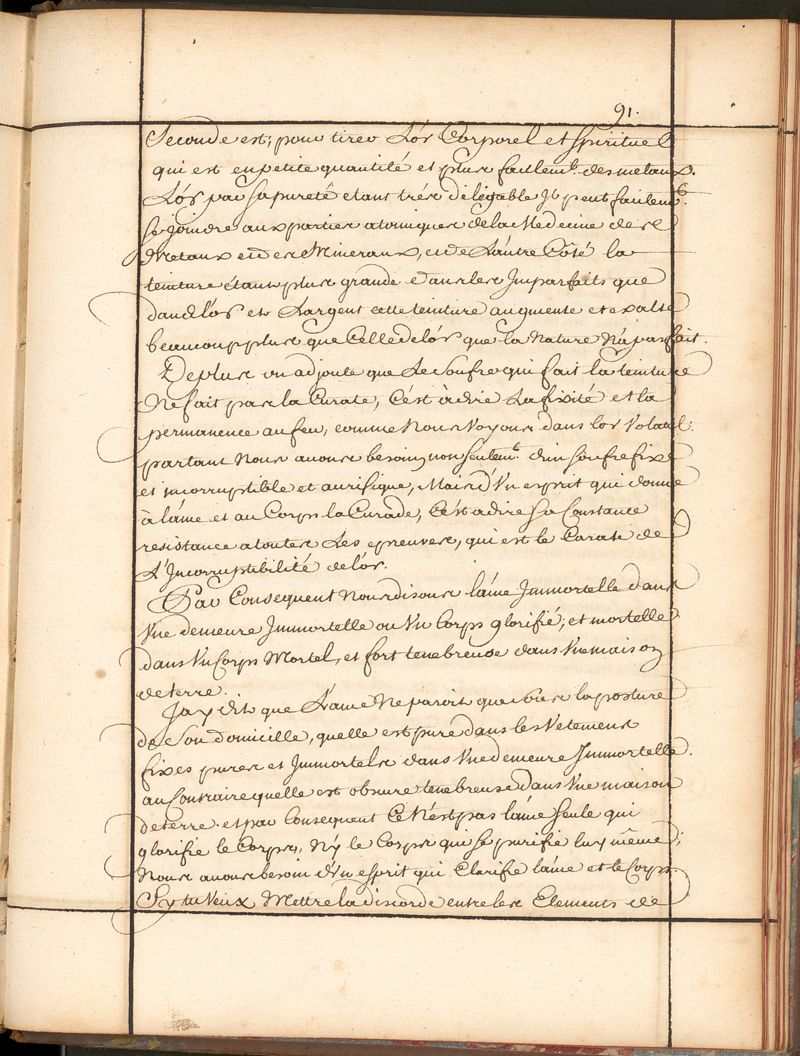 91.
Seconde est, pour tirer L'or Corporel et spirituel
qui est en petite quantité et plus facilem.t des metaux.
L'or par sa pureté etant trés déligable Il peut facilem.t
se joindre aux parties atomiques de la Médecine de
Metaux et des Mineraux, et de L'autre Côté la
teinture étant plus grande dans les Imparfaits que
dans l'or et L'argent cette teinture augmente et exalte
beaucoup plus que Celle de lór que la Nature N'a parfait.
De plus on adjoute que Le soufre qui fait la teinture
Ne fait pas la Curate, C'est à dire La fixité et la
permanence au feu, comme Nous Voyons dans lor Volatil.
partant Nous avons besoin non seulem.t d'un soufre fixe
et incorruptible et aurifique, Mais d'Un esprit qui donne
à lâme et au Corps la Curade, C'est a dire Sa Constance
resistance a toutes Les epreuves, qui est le Carate de
L'Incorruptibilité de lór.
Par Consequent Nous disons lâme Immortelle dans
Vne demeure Immortelle ou Vn Corps glorifié, et mortelle
dans Vn Corps Mortel, et fort tenebreuse dans Vne maison
de terre.
Jay dit que L'ame Ne paroit que sous la posture
de Son domicille, quelle est pure dans les Vetements
fixes pures et Immortels dans Vne demeure Immortelle.
au Contraire quelle est obscure tenebreuse dans Vne maison
de terre. et par Consequent Ce N'est pas lâme seule qui
glorifie le Corps, Ny le Corps qui se purifie luy même;
Nous avons besoin d'Vn esprit qui Clarifie lâme et le Corps
Sy tu Veux Mettre la discorde entre les Elements de